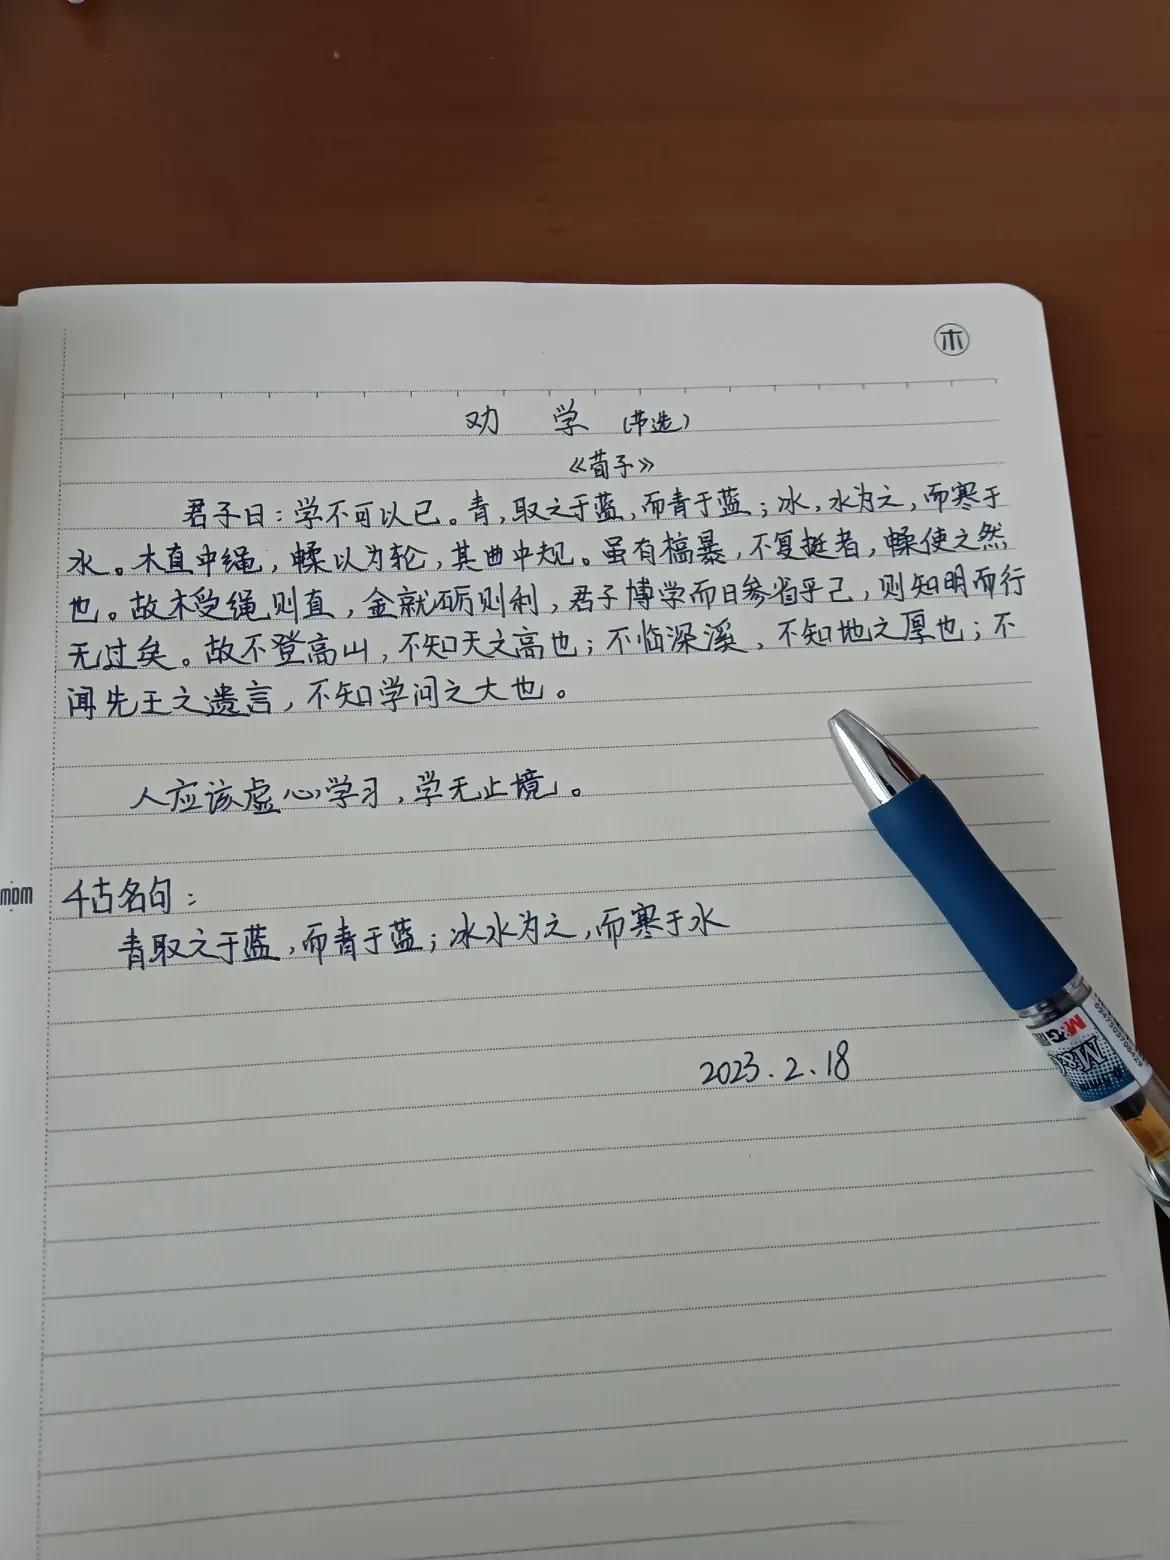 木
劝 学 (节选)
《荀子》
君子曰：学不可以已。青，取之于蓝，而青于蓝；冰，水为之，而寒于
水。木直中绳，輮以为轮，其曲中规。虽有槁暴，不复挺者，輮使之然
也。故木受绳则直，金就砺则利，君子博学而日参省乎己，则知明而行
无过矣。故不登高山，不知天之高也；不临深溪，不知地之厚也；不
闻先王之遗言，不知学问之大也。
人应该虚心学习，学无止境。
MDM
千古名句：
青取之于蓝，而青于蓝；冰水为之，而寒于水
2023.2.18
M&G